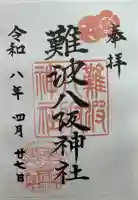 奉拝
難波八阪神社
令和八年四月廿七日